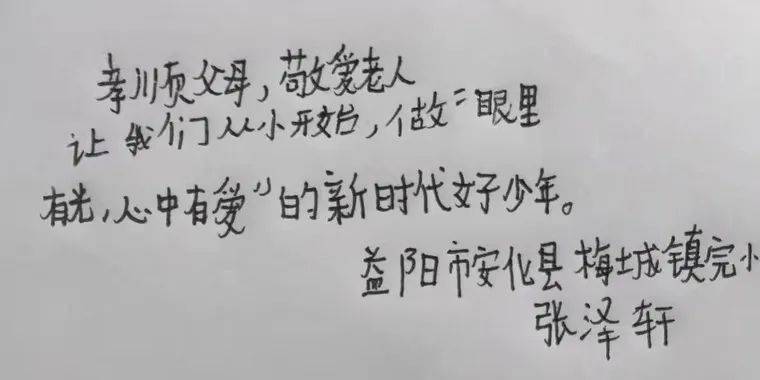 孝顺父母，敬爱老人
让我们从小开始，做“眼里
有光，心中有爱”的新时代好少年。
益阳市安化县梅城镇完小
张泽轩